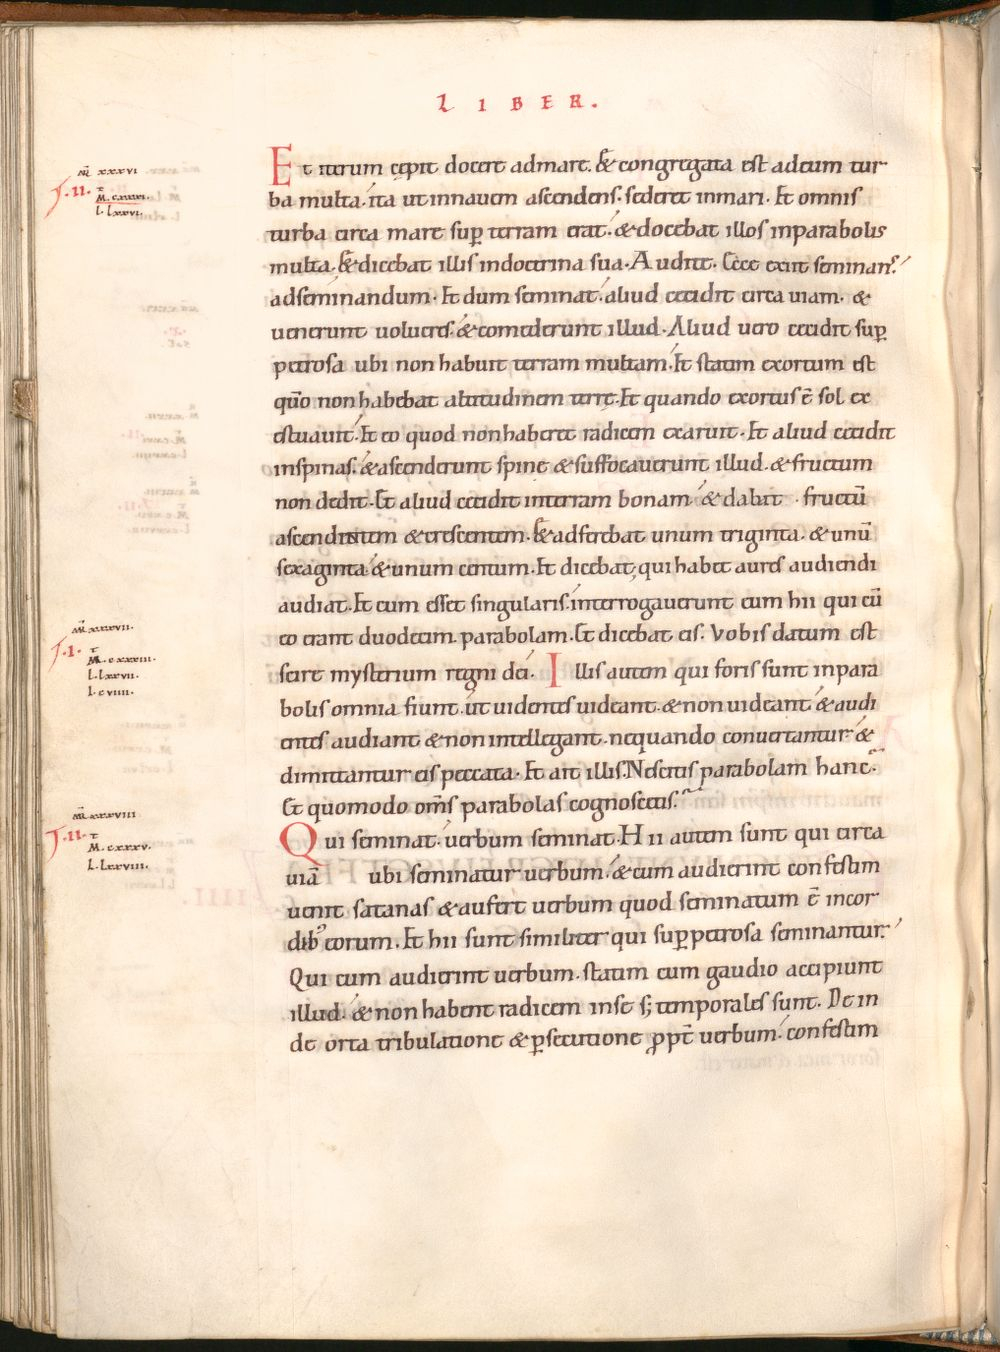 LIBER.
Et iterum cępit docere ad mare. & congregata est ad eum tur
ba multa. ita ut in navem ascendens. sederet in mari. Et omnis
turba circa mare sup̄ terram erat. & docebat illos in parabolis
multa. & dicebat illis in doctrina sua. Audite. Ecce exiit seminans.
ad seminandum. Et dum seminat. aliud cecidit circa uiam. &
uenerunt uolucres. & comederunt illud. Aliud uero cecidit sup̄
petrosa ubi non habuit terram multam. Et statim exortum est
qūo non habebat altitudinem terrę. Et quando exortus ē sol ex
estuauit. Et eo quod non haberet radicem exaruit. Et aliud cecidit
in spinas. & ascenderunt spinę & suffocauerunt illud. & fructum
non dedit. Et aliud cecidit in terram bonam & dabat fructū
ascendentem & crescentem. & adferebat unum triginta. & unū
sexaginta & unum centum. Et dicebat, qui habet aures audiendi
audiat. Et cum esset singularis. interrogauerunt eum hii qui cū
eo erant duodecim. parabolam. Et dicebat eis. Vobis datum est
scire mysterium regni dei. Illis autem qui foris sunt in para
bolis omnia fiunt. ut uidentes uideant. & non uideant & audi
entes audiant & non intellegant. nequando conuertantur &
dimittantur eis peccata. Et ait illis. Nescitis parabolam hanc.
Et quomodo om̄s parabolas cognoscetis.
Qui seminat. uerbum seminat. Hii autem sunt qui circa
uiā ubi seminatur uerbum. & cum audierint confestim
uenit satanas & aufert uerbum quod seminatum ē in cor
dib; eorum. Et hii sunt similiter qui sup̄ petrosa seminantur.
Qui cum audierint uerbum. statim cum gaudio accipiunt
illud. & non habent radicem in se s; temporales sunt. De in
de orta tribulatione & p̱secutione ꝓpt̄ uerbum. confestim
m̄ xxxvi
.II.
M. cxxxi.
l. lxxvi.
m̄ xxxvii.
.I.
M. cxxxiii.
l. lxxvii.
l. cviiii.
m̄ xxxviii
.II.
M. cxxxv.
l. lxxviii.